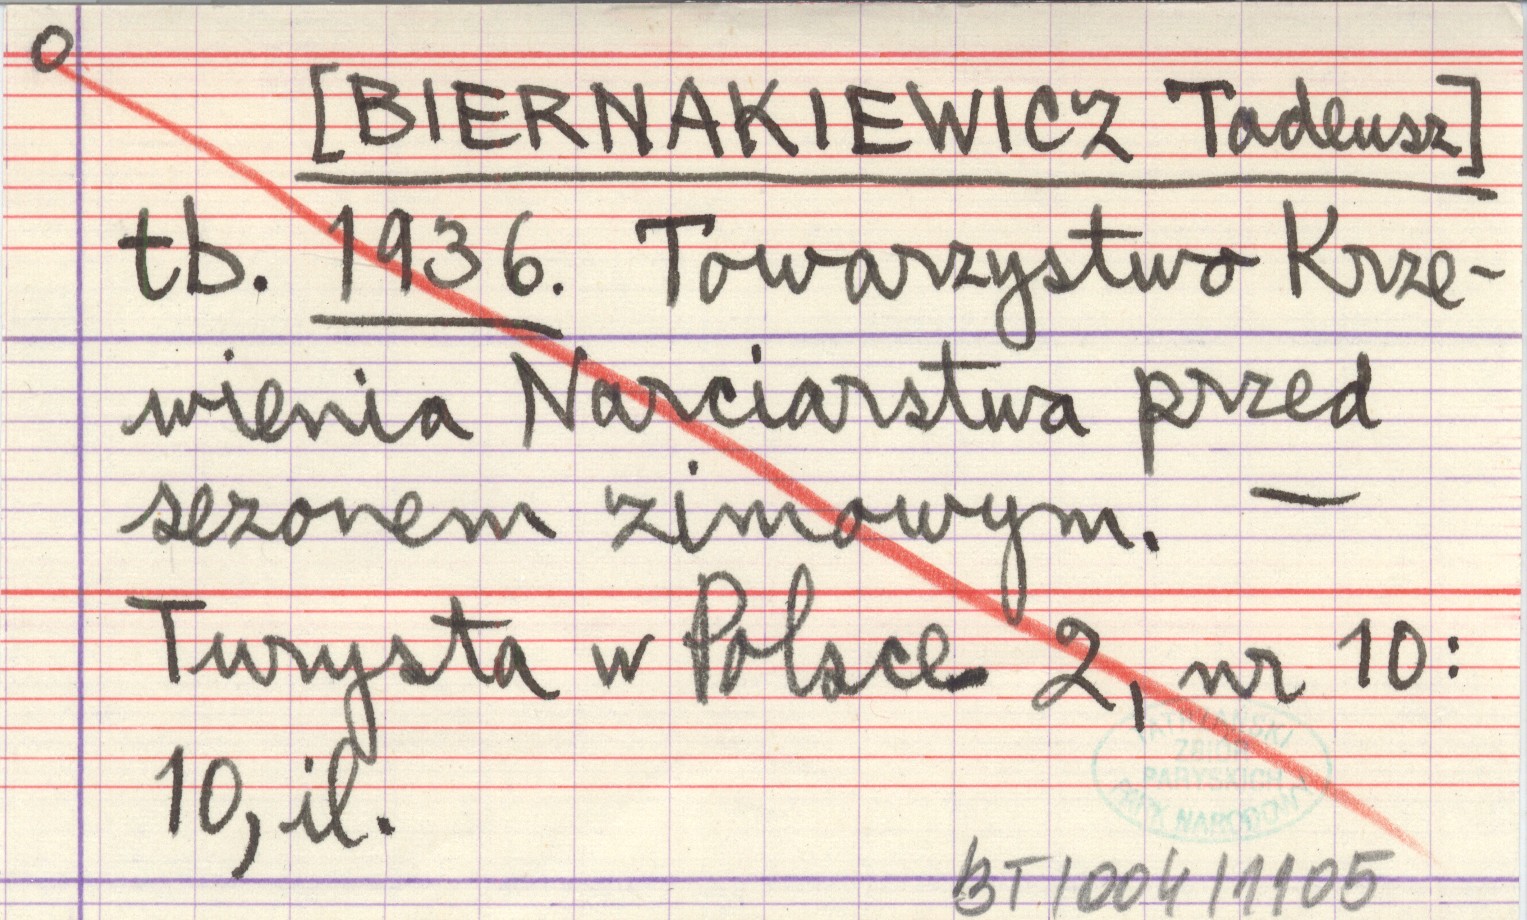 o
[BIERNAKIEWICZ Tadeusz]
tb. 1936. Towarzystwo Krze-
wienia Narciarstwa przed
sezonem zimowym. —
Turysta w Polsce 2, nr 10:
10, il.
TATRZAŃSKI
ZBIÓR
PARYSKICH
PARK NARODOWY
BT/004/1105